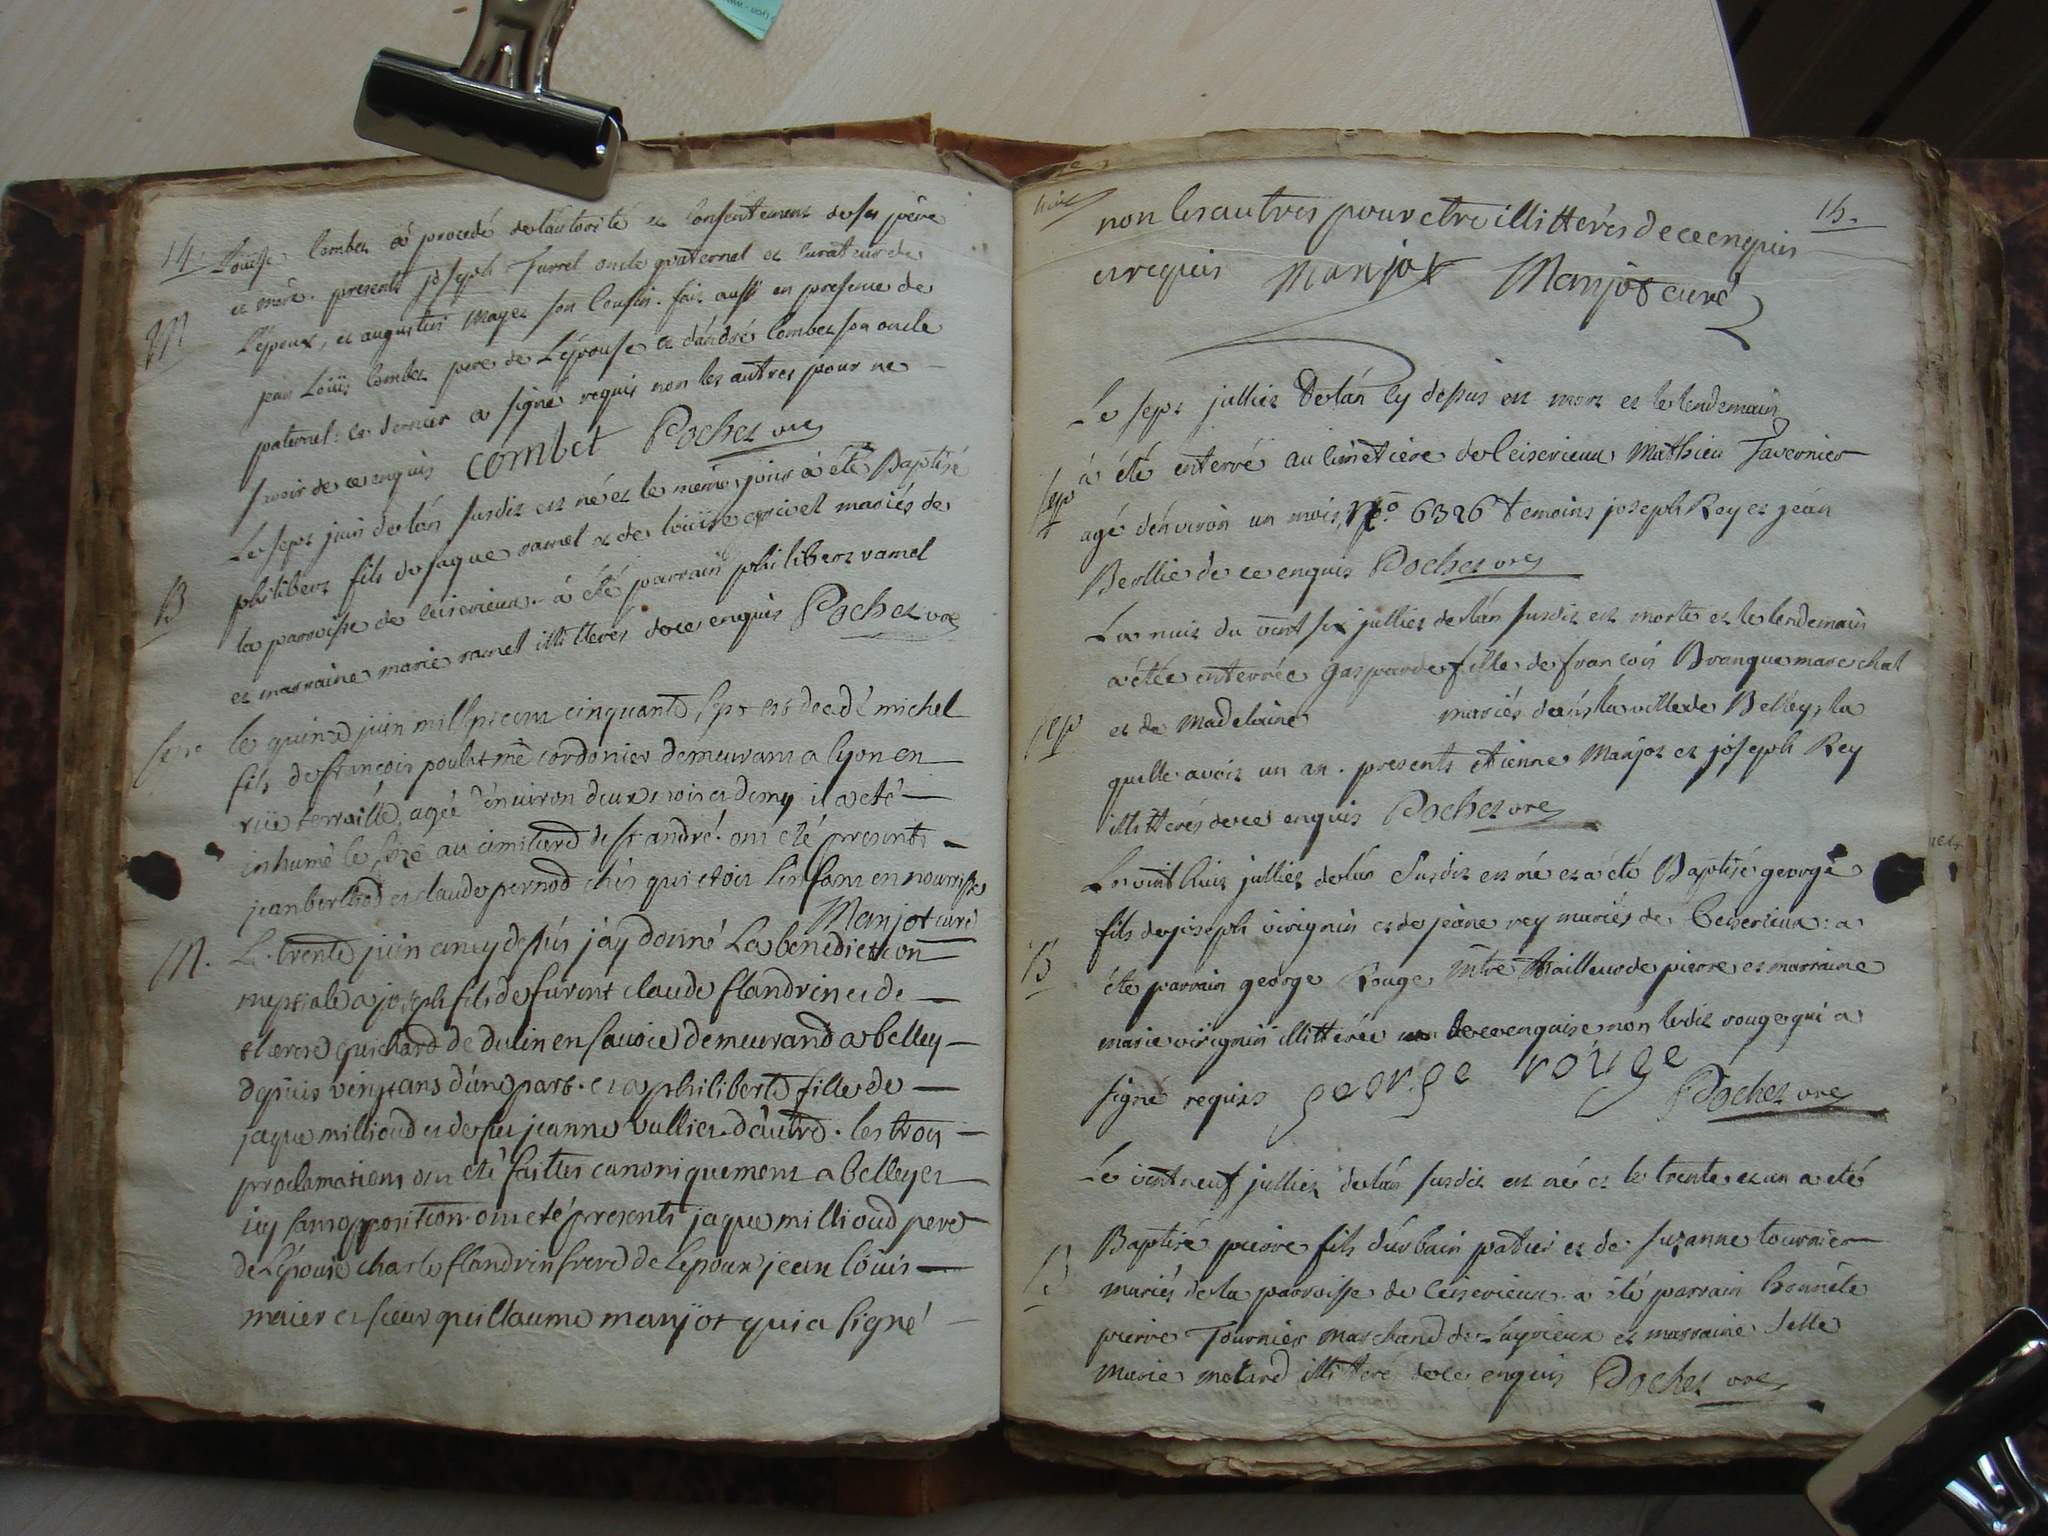 14.
Louise Combet a procedé de l'autorité et consentement de ses père
M
et mère. presents joseph Furrel oncle paternel et curateur de
L'époux, et augustin Mayer son Cousin. fait aussi en presence de
jean Loüis Combet pere de L'épouse et d'andré Combet son oncle
paternel: ce dernier a signé requis non les autres pour ne
scavoir de ce enquis combet Pochet vre
Le sept juin de l'an susdit est né et le même jour à été Baptisé
B
philibert fils de jaque ramel et de loüise cyvoct mariés de
la parroisse de Ceiserieux. à été parrain philibert ramel
et marraine marie ramel illitterés de ce enquis Pochet vre
Sepre
le quinze juin mil sept cent cinquante sept est decedé michel
fils de françois poulat me cordonier demeurant a lyon en
rüe terraille, agée d'environ deux mois et demy il a eté
inhumé le seze au cimitierd de st andré. ont eté presents
jean berthod et claude pernod chés qui etoit l'enfant en nourrisse
Manjot curé
M.
Le trente juin an cy depuis j'ay donné La benediction
nuptiale a joseph fils de furent claude flandrin et de
therese guichard de dulin en savoie demeurand a belley
depuis vingt ans d'une part. et a philiberte fille de
jaque millioud et de feu jeanne vullier d'autre. les trois
proclamations ont eté faites canoniquement a belley et
icy sans opposition. ont eté presents jaque millioud pere
de L'épouse charle flandrin frere de l'epoux jean loüis
maier et sieur guillaume manjot qui a signé
15.
non les autres pour etre illitterés de ce enquis
et requis Manjot Manjot curé
Le sept julliet de l'an cy depus est mort et le lendemain
à été enterré au cimetiere de Ceiserieux Mathieu Tavernier
sep
agé d'environ un mois, No 6326 temoins joseph Rey et jean
Berllie de ce enquis Pochet vre
La nuit du vint six julliet de l'an susdit est morte et le lendemain
a étée enterrée gasparde fille de françois Branque marechal
sep
et de Madelaine mariés dans la ville de Belley, la
quelle avoit un an. presents etienne Manjot et joseph Rey
illitterés de ce enquis Pochet vre
Le vint huit julliet de l'an susdit est né et a été Baptisé george
fils de joseph virignin et de jeane rey mariés de Ceiserieux: a
B
éte parrain george Rouge mtre tailleur de pierre et marraine
marie virignin illitterée de ce enquise non ledit rouge qui a
signé requis george rouge
Pochet vre
Le vint neuf julliet de l'an susdit est né et le trente et un a eté
Baptisé pierre fils d'urbain patier et de suzanne tournier
B
mariés de la parroisse de Ceiserieux. a été parrain honnête
pierre Tournier marchand de Layrieux et marraine delle
Marie motard illitteré de ce enquis Pochet vre